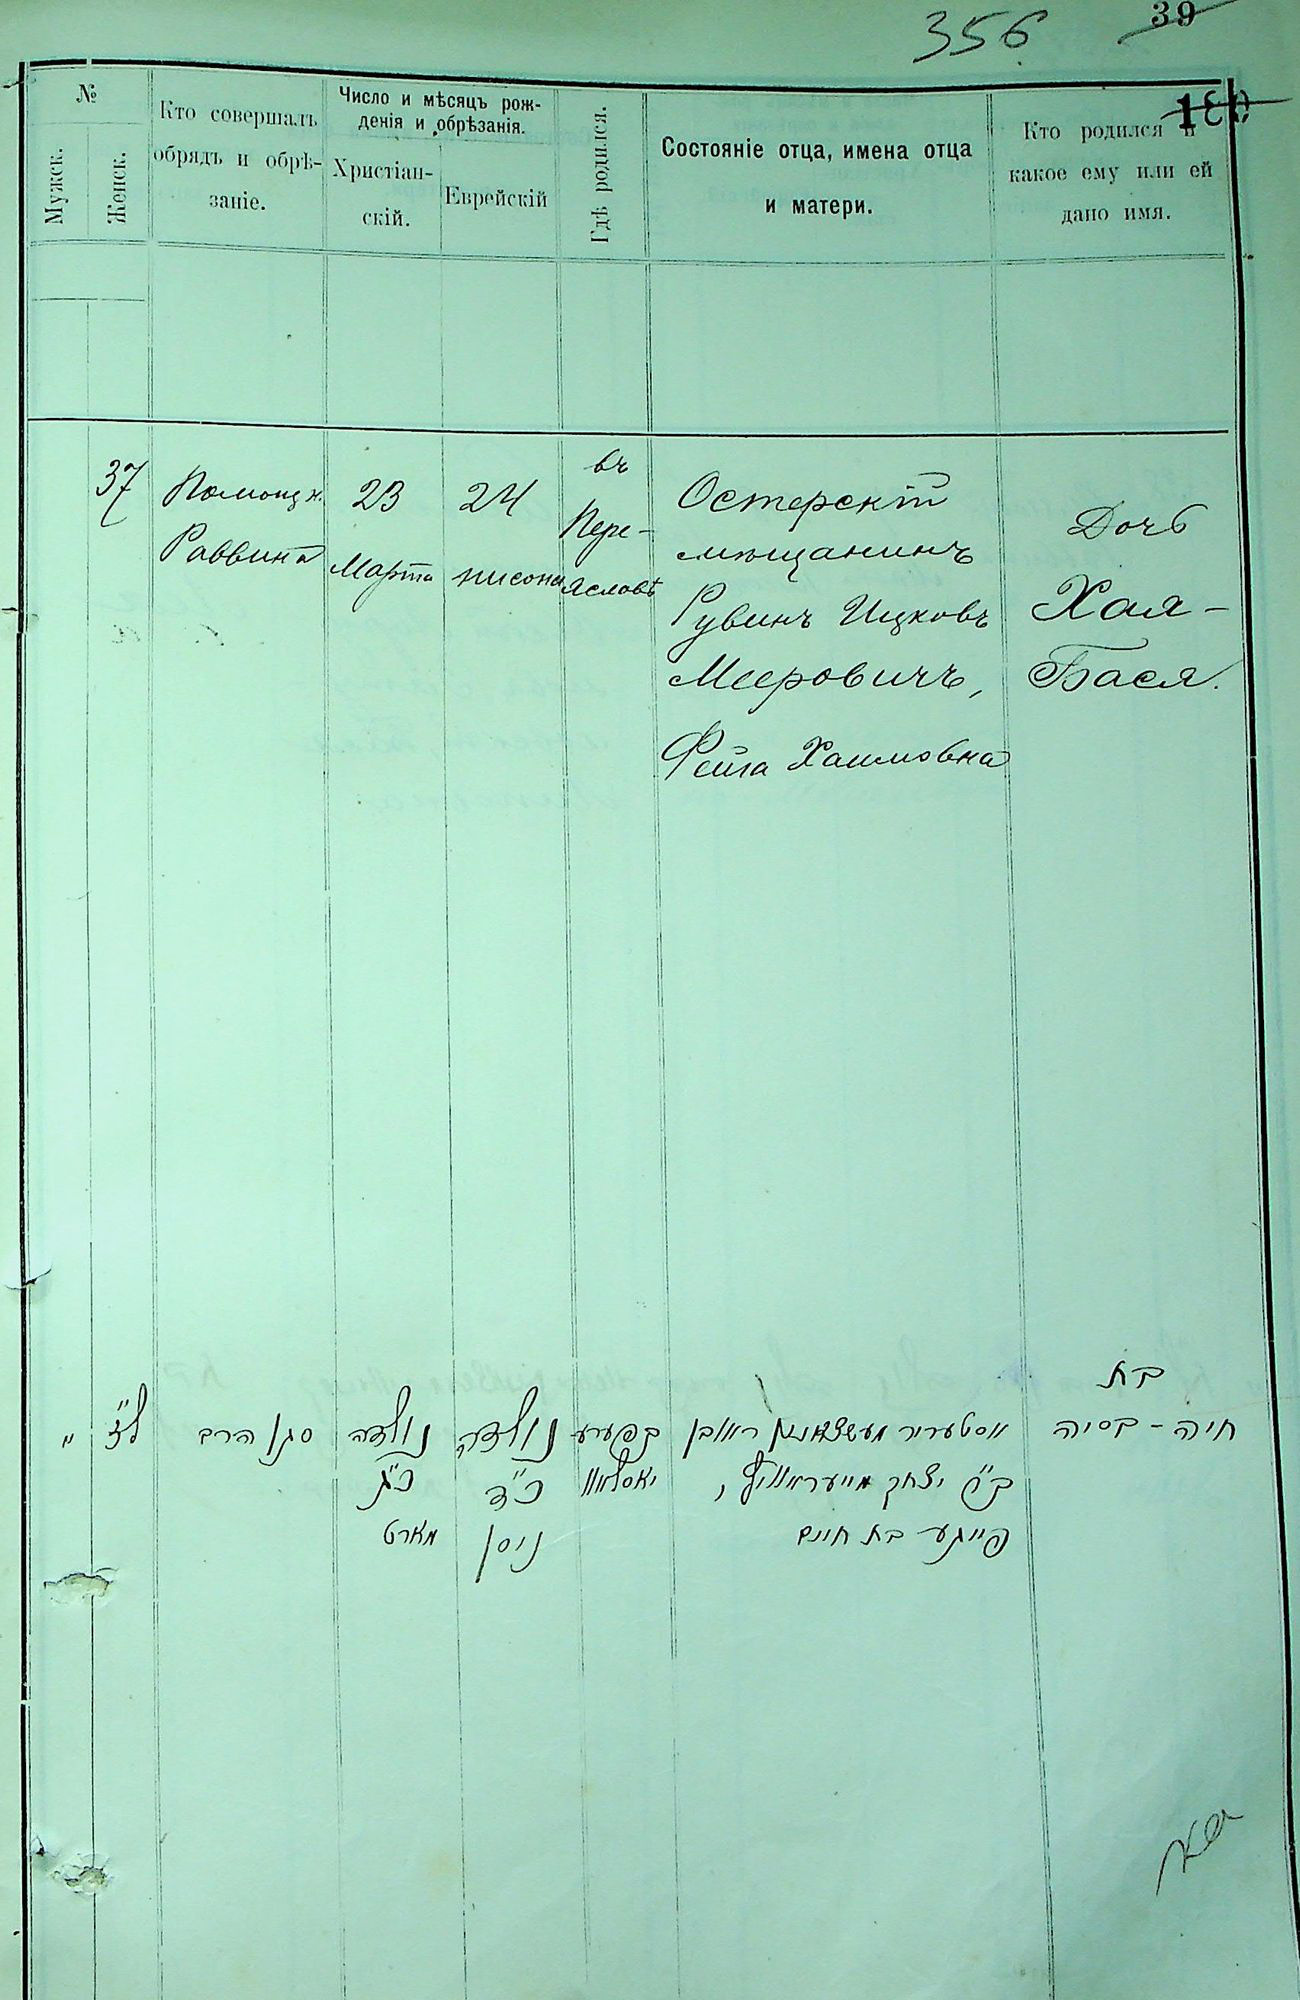 356
39
№
Мужск.
Женск.
Кто совершалъ
обрядъ и обрѣ-
заніе.
Число и мѣсяцъ рож-
денія и обрѣзанія.
Христіан-
скій.
Еврейскій
Гдѣ родился.
Состояніе отца, имена отца
и матери.
Кто родился и
какое ему или ей
дано имя.
37
Помощн.
Раввина
23
Марта
24
нисона
въ
Пере-
яславѣ
Остерскій
мѣщанинъ
Рувинъ Ицковъ
Мееровичъ,
Фейга Хаимовна
Дочь
Хая-
Бася.
"
ל"ז
סגן הרב
נולדה
כ"ג
מארט
נולדה
כ"ד
ניסן
בפערע
יאסלאוו
אסטעריר מעשצאנין ראובן
ב"ר יצחק מייעראוויץ,
פייגע בת חיים
בת
חיה - בסיה